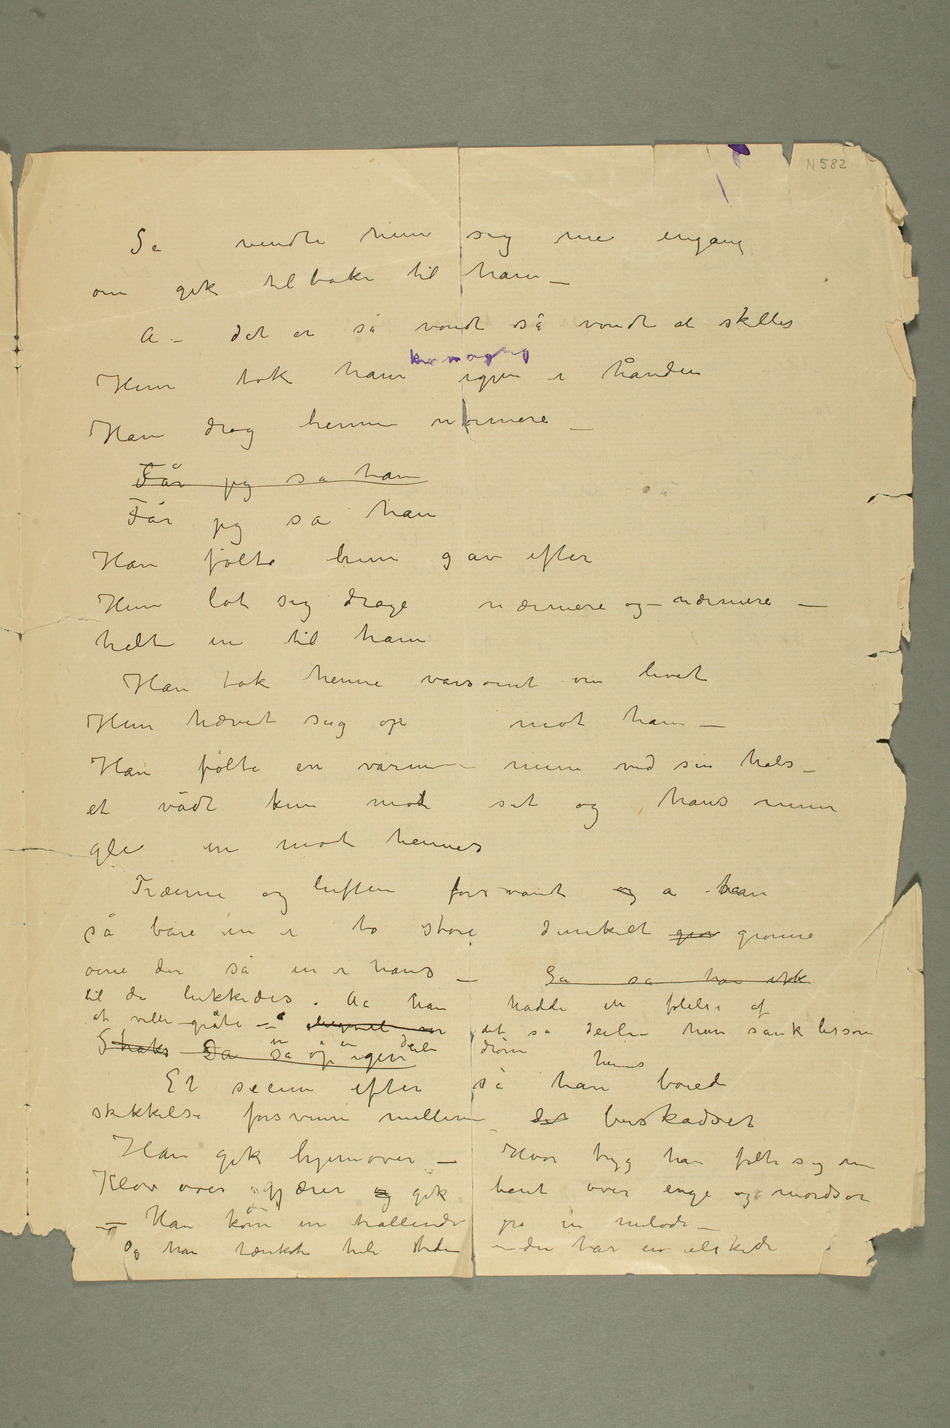 N 582
Så vendte hun sig me engang
om gik tilbake til ham —
A – det er så vondt så vondt at skilles
Hun tok ham igjen i hånden
Han drog henne nærmere –
Får jeg sa han
Får jeg sa han
Han følte hun gav efter
Hun lot sig drage nærmere og nærmere —
helt in til ham
Han tok henne varsomt om livet
Hun hævet sig op mot ham —
Han følte en varm munn ved sin hals –
et vådt kin mot sit og hans munn
gle in mot hennes
Træerne og luften forsvant og a han
så bare in i to store dunkelt grønne
øine der så in i hans –
til de lukkedes. Aa han hadde en følelse af
at ville gråte – det så deilig hun sank lissom
in i en deilig drøm
Straks Da så op igen
Et secun efter så han hennes bøied
skikkelse forsvinne mellem det buskadset
Han gik hjemover — Hvor tryg han følte sig nu
Klov over gjærer og gik bent over enge og mordsor
— Han kom in trallende på en melodi —
Og han tænkte hele tiden – du har en elskede